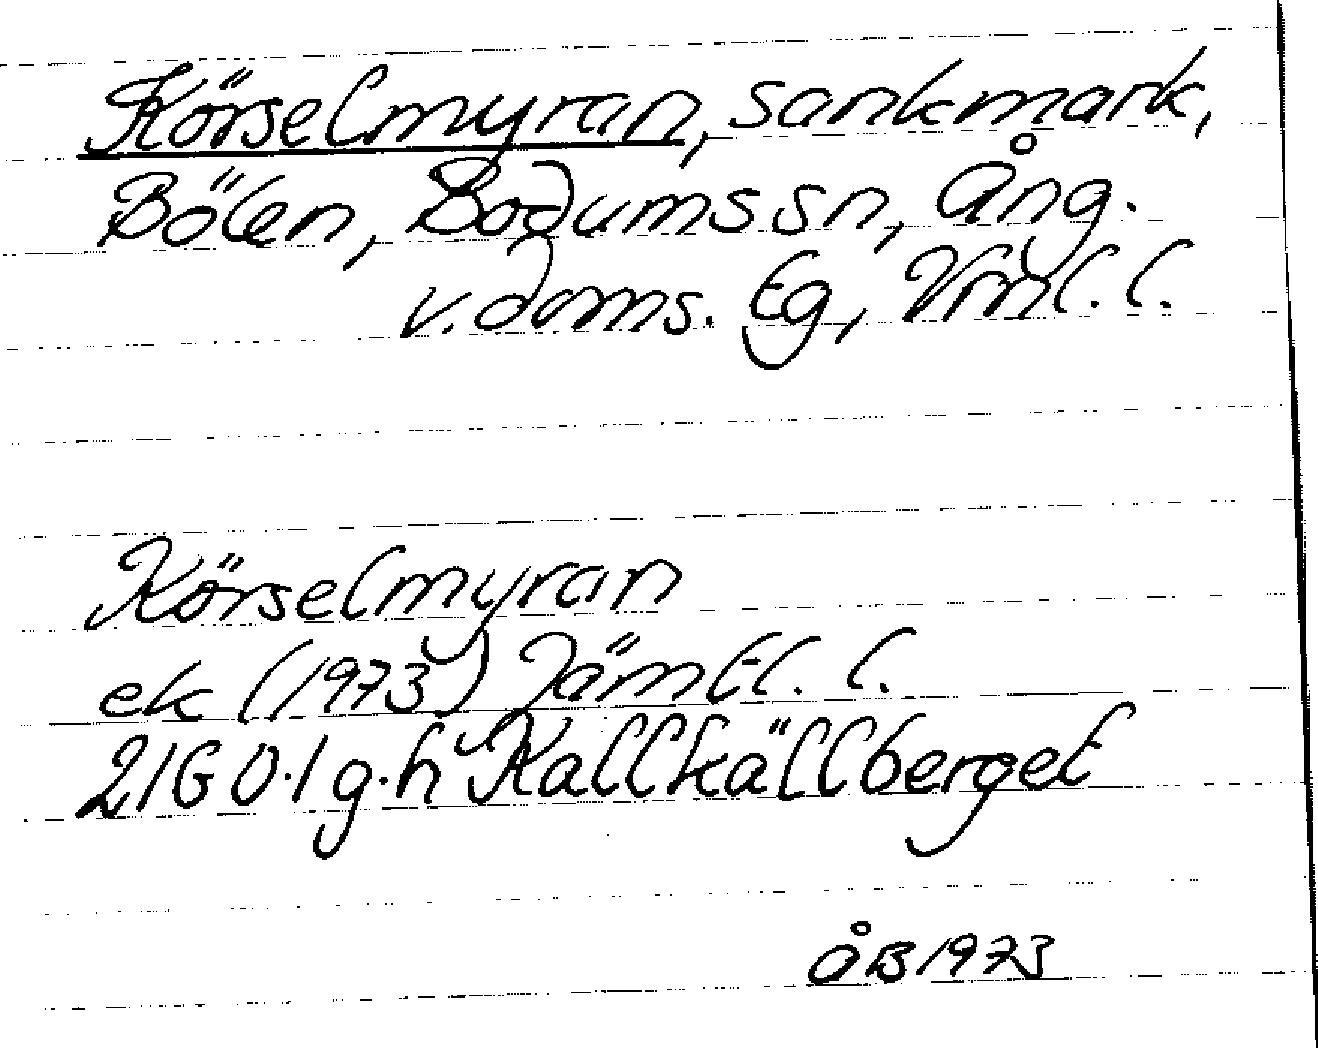 Körselmyran, sankmark,
Bölen, Bodums sn, Ång.
v. doms. Eg, Vml. l.
Körselmyran
ek (1973) Jämtl. l.
21G 0·1 g·h Kallkällberget
ÅB 1973